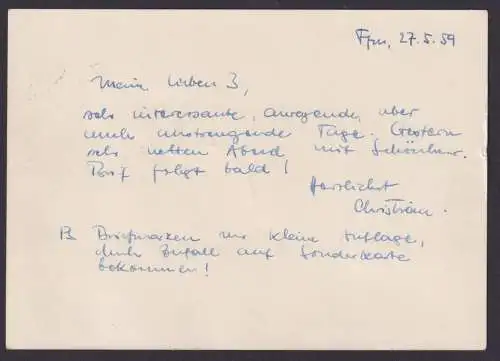 Ffm, 27.5.59
Meine lieben 3,
sehr interessante, anregende, aber
auch anstrengende Tage. Gestern
sehr netten Abend mit
Brief folgt bald!
Herzlichst
Christian.
PS Briefmarken nur kleine Auflage,
durch Zufall auf Sonderkarte
bekommen!